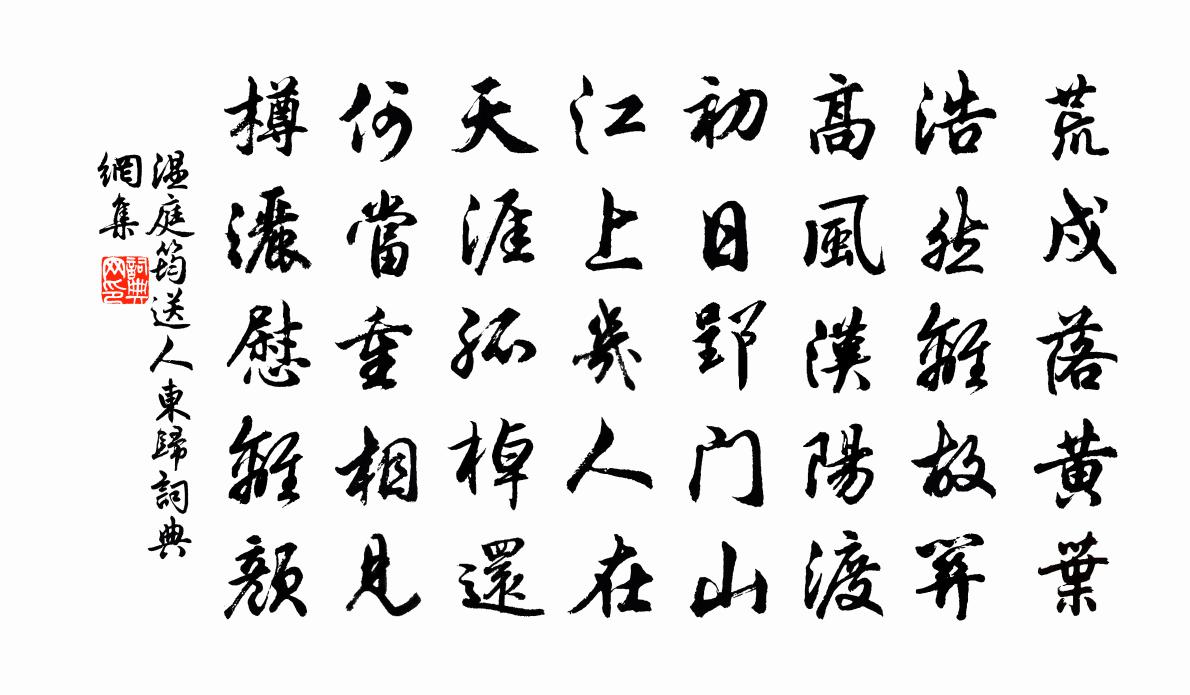 荒戍落黃葉
浩然離故關
高風漢陽渡
初日郢门山
江上幾人在
天涯孤棹還
何當重相見
樽灑慰離顏
温庭筠送人東歸詞典
網集
詞典网印